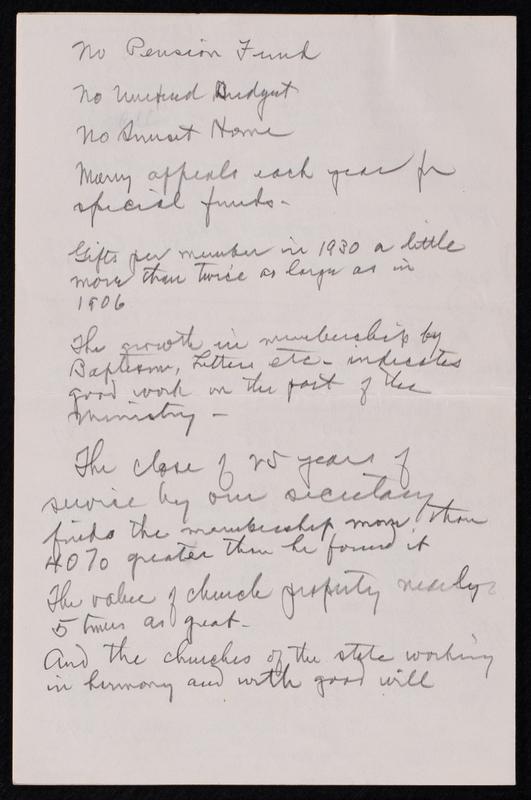 No Pension Fund
No Unified Budget
No Sunset Home
Many appeals each year for
special funds -
Gifts per member in 1930 a little
more than twice as large as in
1906
The growth in membership by
Baptism, Letters etc - indicates
good work on the part of the
Ministry -
The close of 25 years of
service by our secretary
finds the membership more than
40% greater than he found it
The value of church property nearly
5 times as great -
And the churches of the state working
in harmony and with good will